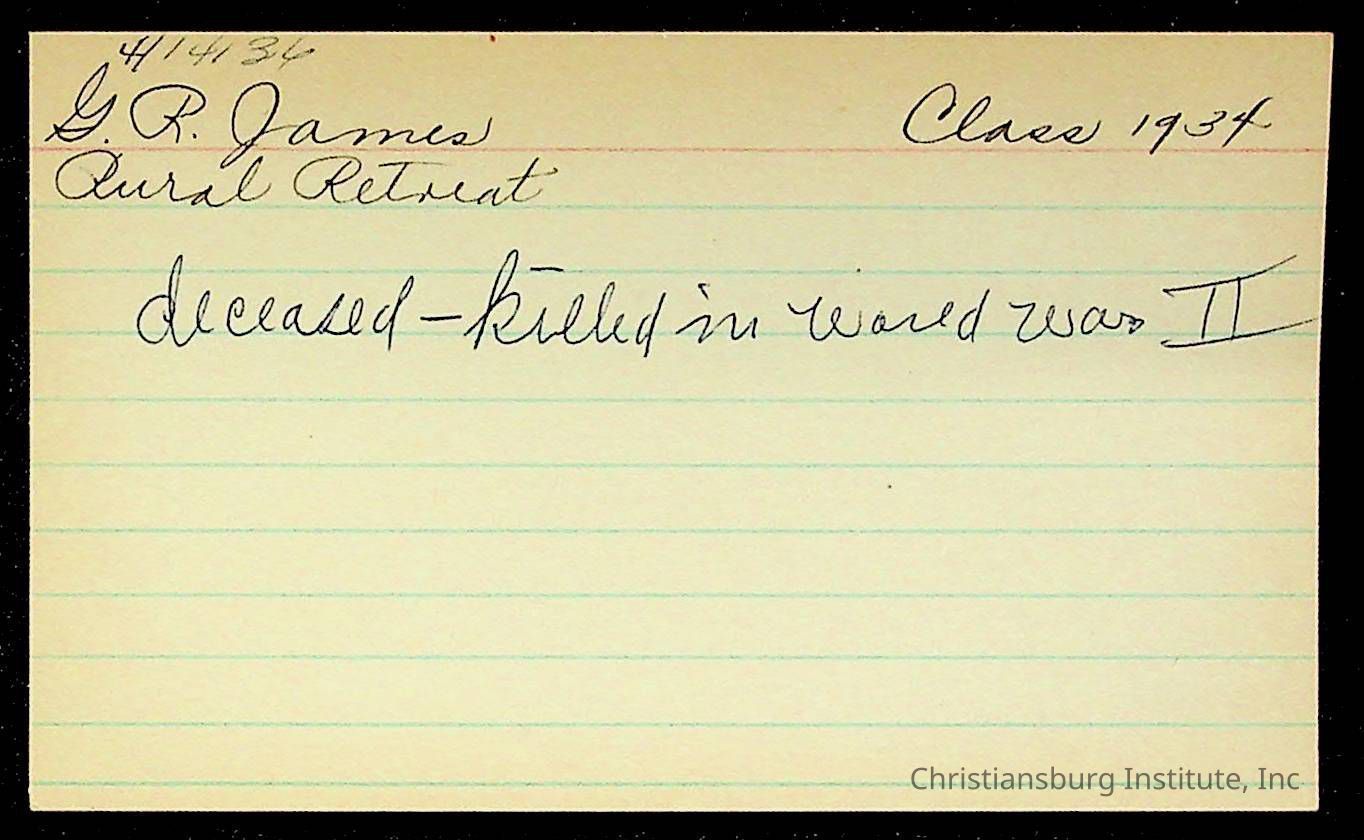 4/14/36
G. R. James Class 1934
Rural Retreat
deceased – killed in World War II
Christiansburg Institute, Inc